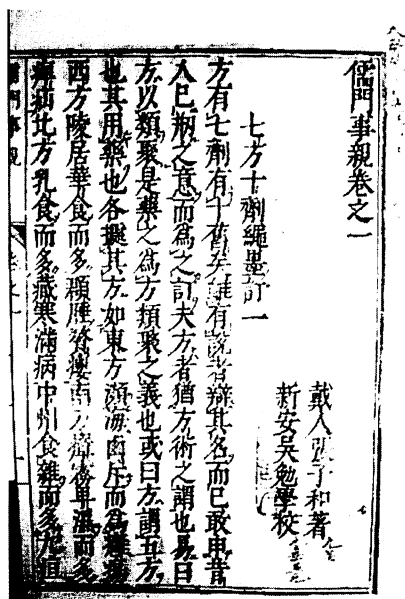 儒門事親卷之一
戴人張子和著
新安吳勉學校
七方十劑繩墨訂一
方有七劑有十舊矣雖有說者辯其名而已敢申昔
人已㨂之意而爲之訂夫方者猶方術之謂也易曰
方以類聚是藥之爲方類聚之義也或曰方謂五方
也其用藥也各據其方如東方瀕海鹵斥而爲癰瘍
西方陵居華食而多頸腫瘿瘻南方瘴霧卑濕而多
痹疝北方乳食而多藏寒滿病中州食雜而多九疸
儒門事親
卷之一